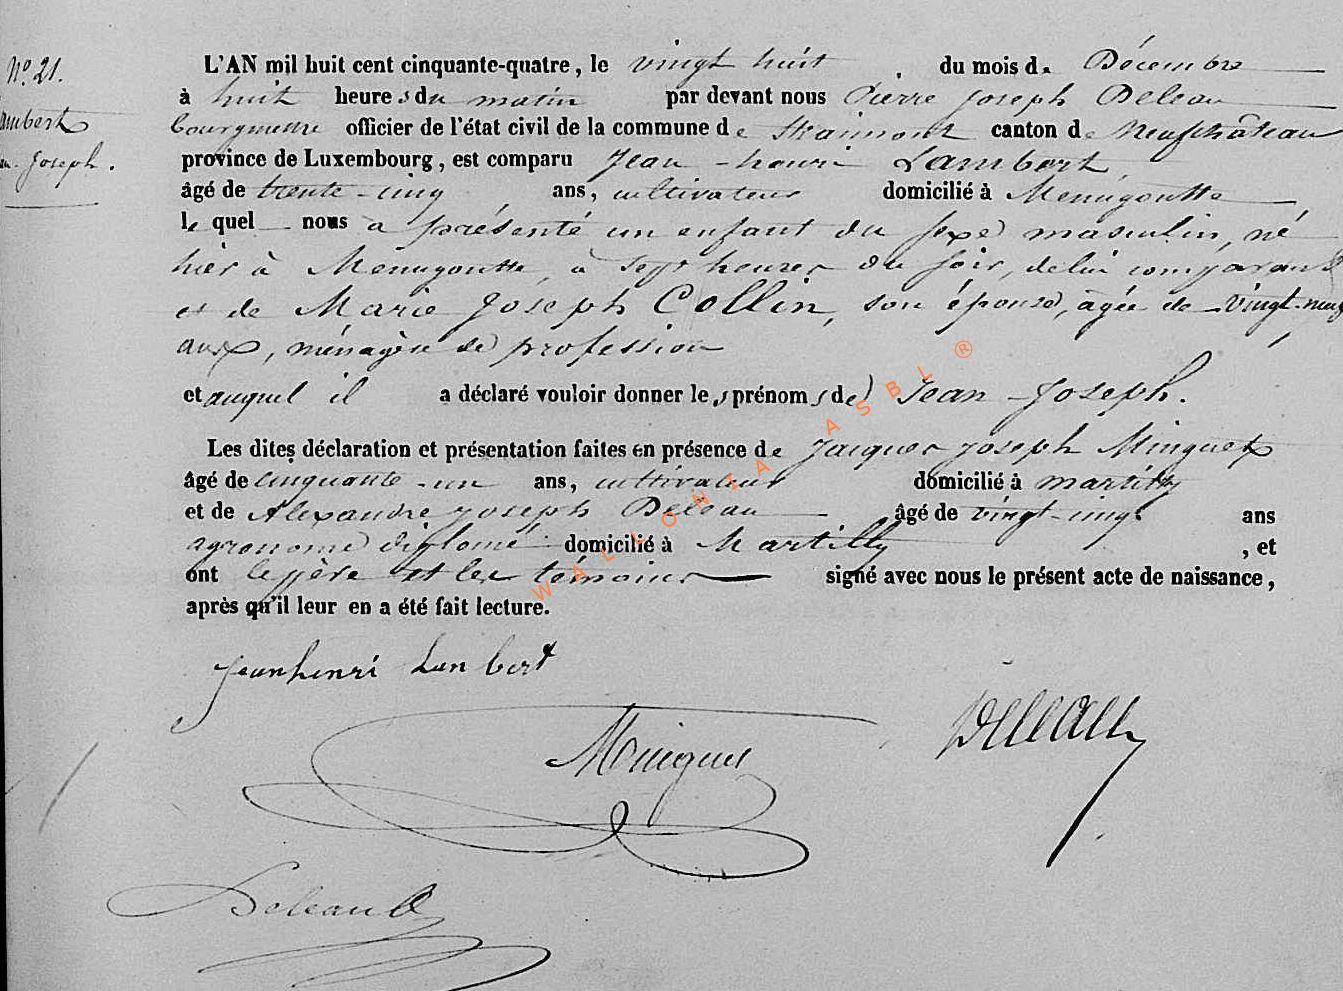 N° 21.
Lambert
Jean-Joseph.
L'AN mil huit cent cinquante-quatre, le vingt huit du mois de Décembre
à huit heures du matin par devant nous Pierre Joseph Deleau
bourgmestre officier de l'état civil de la commune de Straimont canton de Neufchâteau
province de Luxembourg, est comparu Jean-henri Lambert,
âgé de trente-cinq ans, cultivateur domicilié à Menugoutte,
lequel nous a présenté un enfant du sexe masculin, né
hier à Menugoutte, à sept heures du soir, de lui comparant
et de Marie Joseph Collin, son épouse, âgée de vingt-neuf
ans, ménagère de profession
et auquel il a déclaré vouloir donner les prénoms de Jean-Joseph.
Les dites déclaration et présentation faites en présence de Jacques Joseph Minguet
âgé de cinquante-un ans, cultivateur domicilié à martilly
et de Alexandre Joseph Deleau âgé de vingt-cinq ans
agronome diplomé domicilié à Martilly, et
ont le père et les témoins signé avec nous le présent acte de naissance,
après qu'il leur en a été fait lecture.
Jeanhenri Lambert
Minguet
Deleau
Deleau
WALLONIA ASBL ®